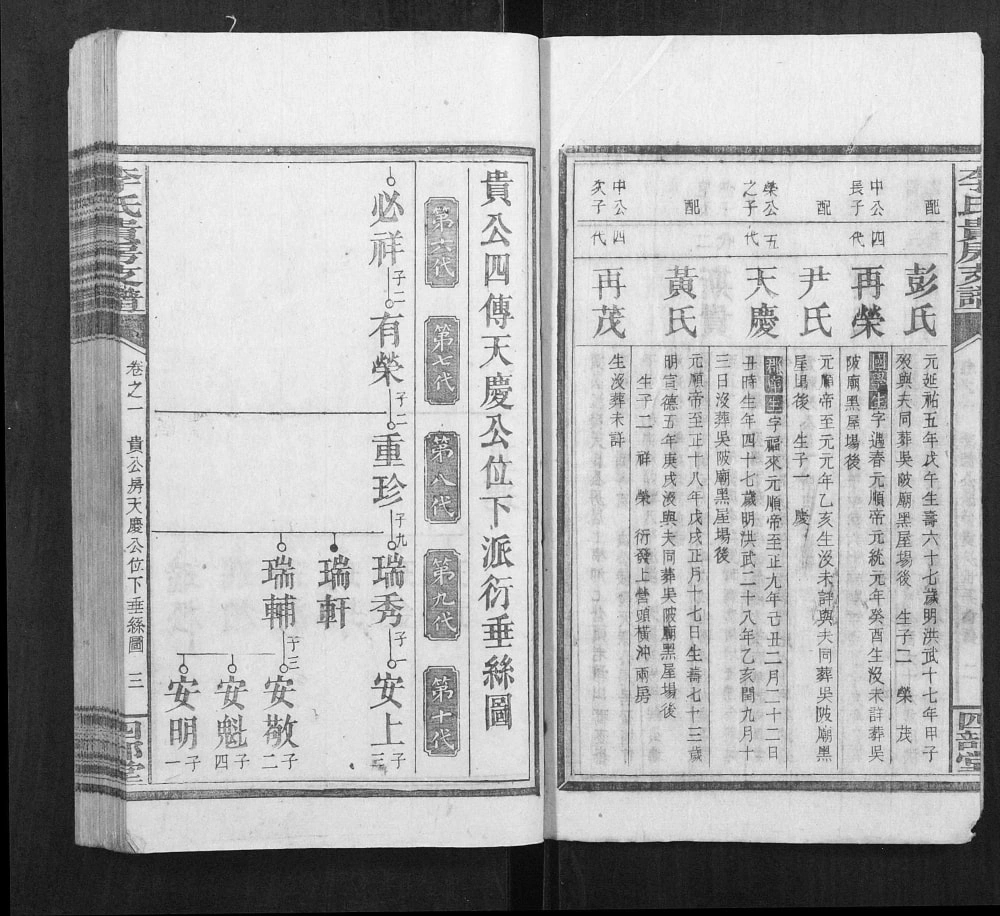 李氏貴房支譜
四部堂
配
彭氏
元延祐五年戊午生壽六十七歲明洪武十七年甲子
歿與夫同葬吳陂廟黑屋場後 生子二 榮 茂
中公四代
長子
再榮
國學生字遇春元順帝元統元年癸酉生沒未詳葬吳
陂廟黑屋場後
配
尹氏
元順帝至元元年乙亥生沒未詳與夫同葬吳陂廟黑
屋場後 生子一 慶
榮公五代
之子
天慶
郡庠生字福來元順帝至正九年己丑二月二十二日
丑時生年四十七歲明洪武二十八年乙亥閏九月十
三日沒葬吳陂廟黑屋場後
配
黃氏
元順帝至正十八年戊戌正月十七日生壽七十三歲
明宣德五年庚戌沒與夫同葬吳陂廟黑屋場後
生子二 祥 榮 衍發上營頭橫沖兩房
中公四代
次子
再茂
生沒葬未詳
貴公四傳天慶公位下派衍垂絲圖
第六代
第七代
第八代
第九代
第十代
必祥 子二
有榮 子二
重珍 子九
瑞秀 子一
安上 子三
瑞軒
瑞輔 子三
安敬 子二
安魁 子四
安明 子一
李氏貴房支譜
卷之一 貴公房天慶公位下垂絲圖 三
四部堂